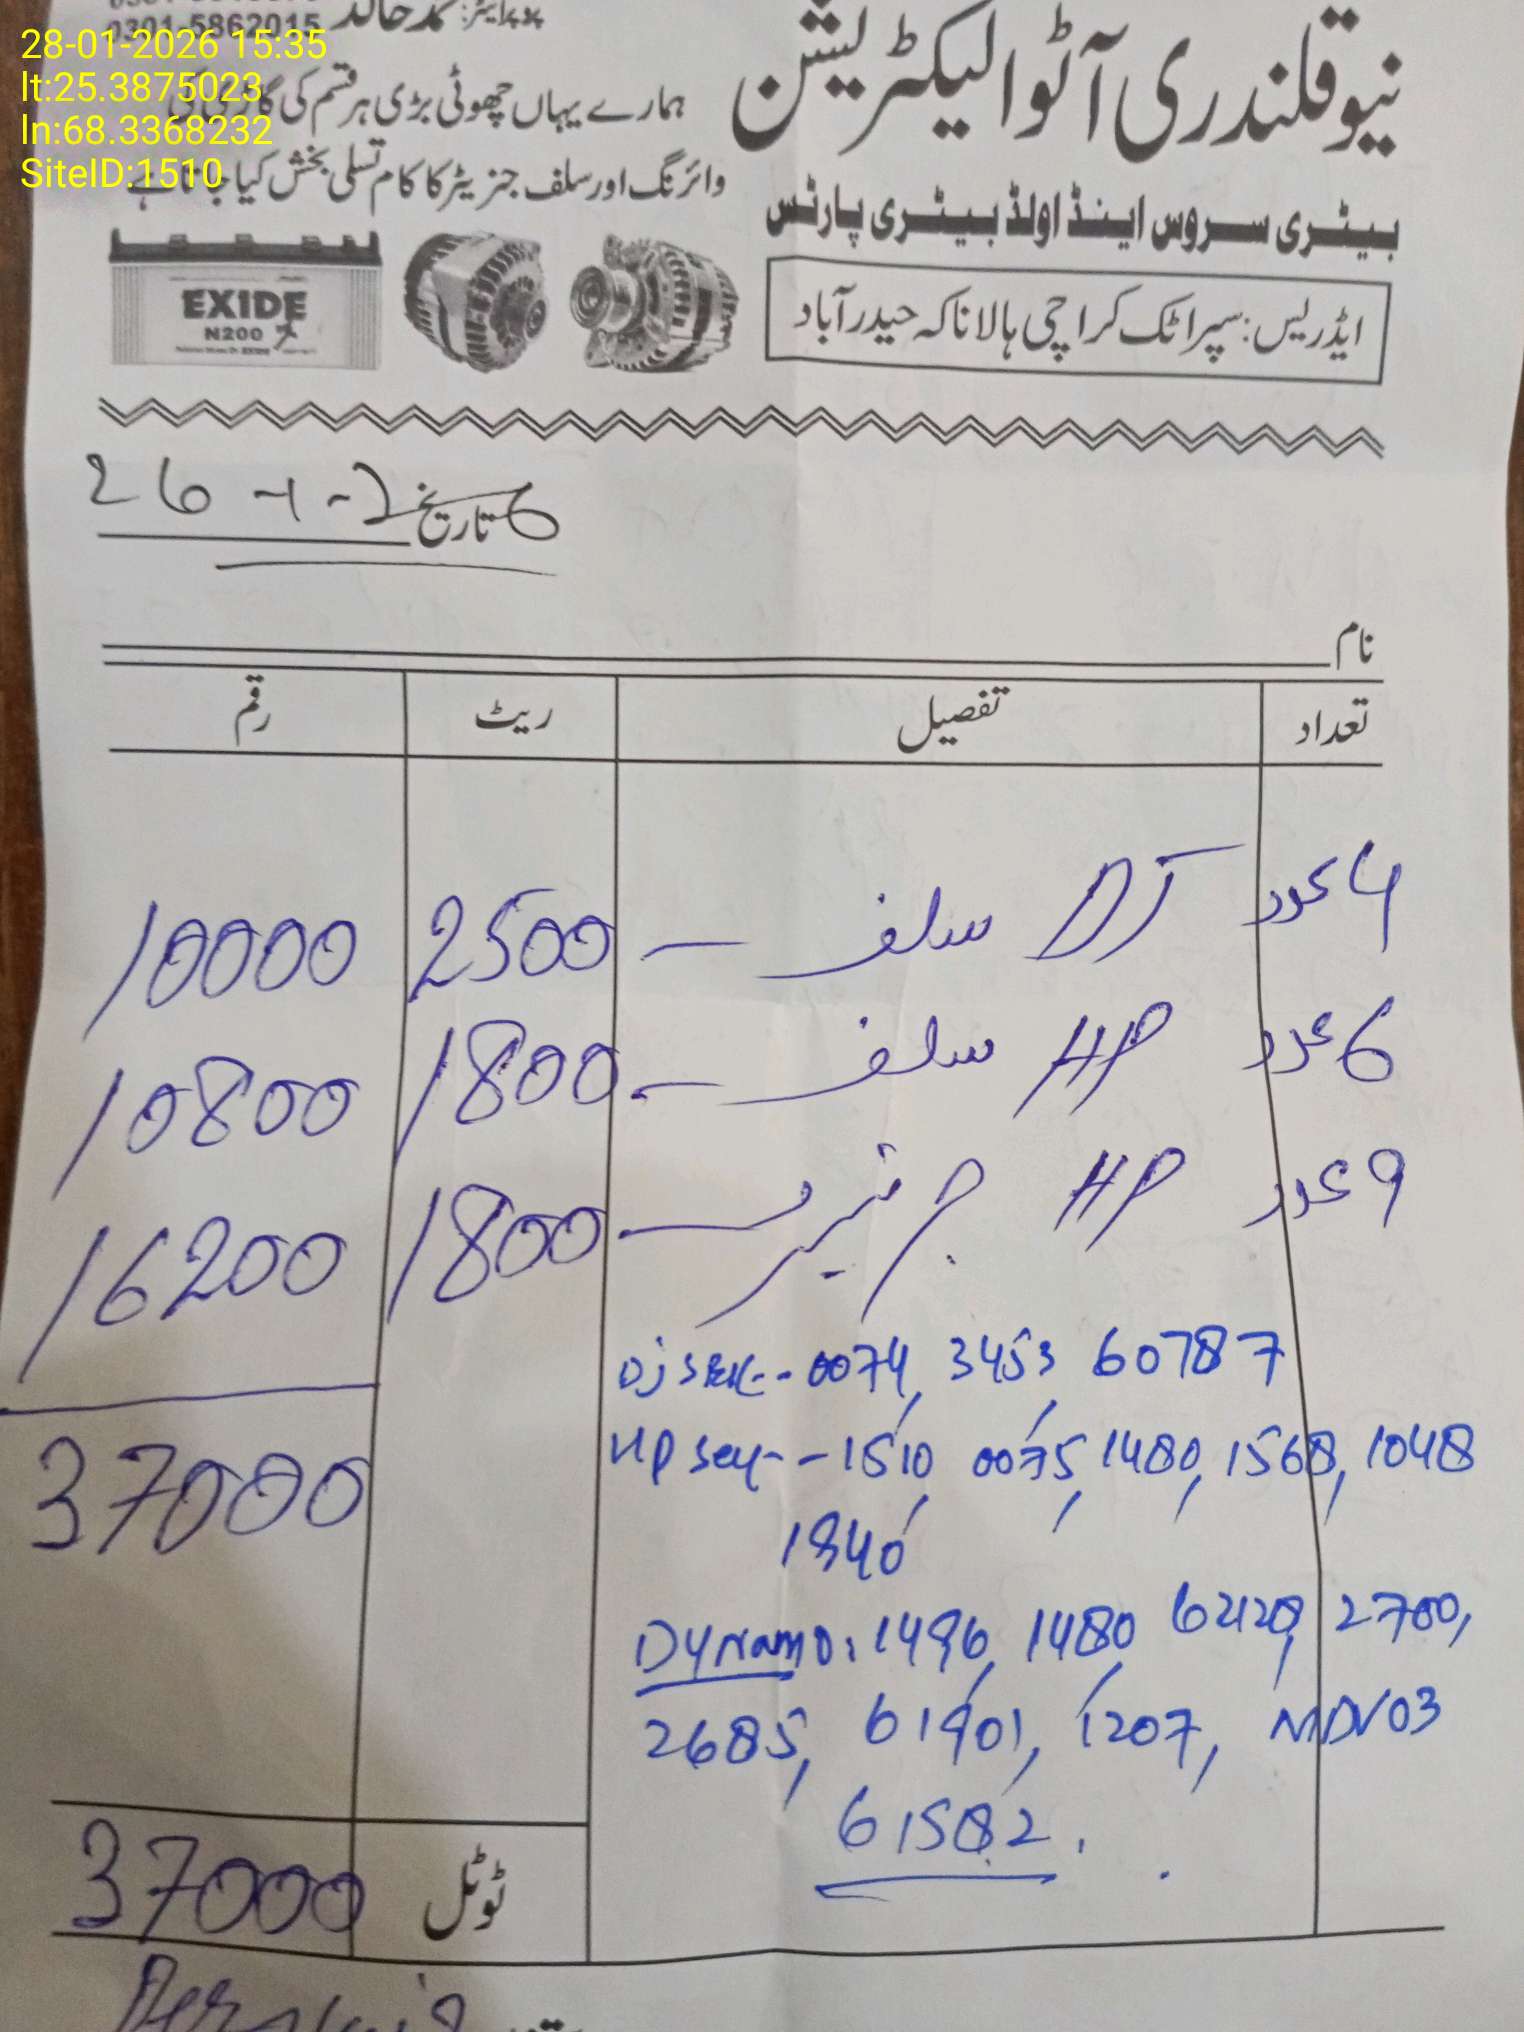 28-01-2026 15:35
lt:25.3875023
ln:68.3368232
SiteID:1510
0301-5862015
پروپرائیٹر: محمد خالد
نیو قلندری آٹو الیکٹریشن
ہمارے یہاں چھوٹی بڑی ہر قسم کی
وائرنگ اور سلف جنریٹر کا کام تسلی بخش کیا جاتا ہے
بیٹری سروس اینڈ اولڈ بیٹری پارٹس
EXIDE
N200
ایڈریس: سپرا ٹک کراچی ہالا ناکہ حیدرآباد
تاریخ 26-1-26
نام
تعداد تفصیل ریٹ رقم
4 عدد DJ سلف 2500 10000
6 عدد HP سلف 1800 10800
9 عدد HP جرنیٹر 1800 16200
Dj -- 0074, 3453, 60787
HP -- 1510, 0075, 1480, 1568, 1048
1840
37000
Dynamo: 1496, 1480, 62120, 2700,
2685, 61901, 1207, MDV03
61582.
ٹوٹل 37000